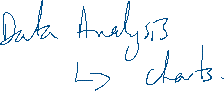 Data Analysis
↳ charts.